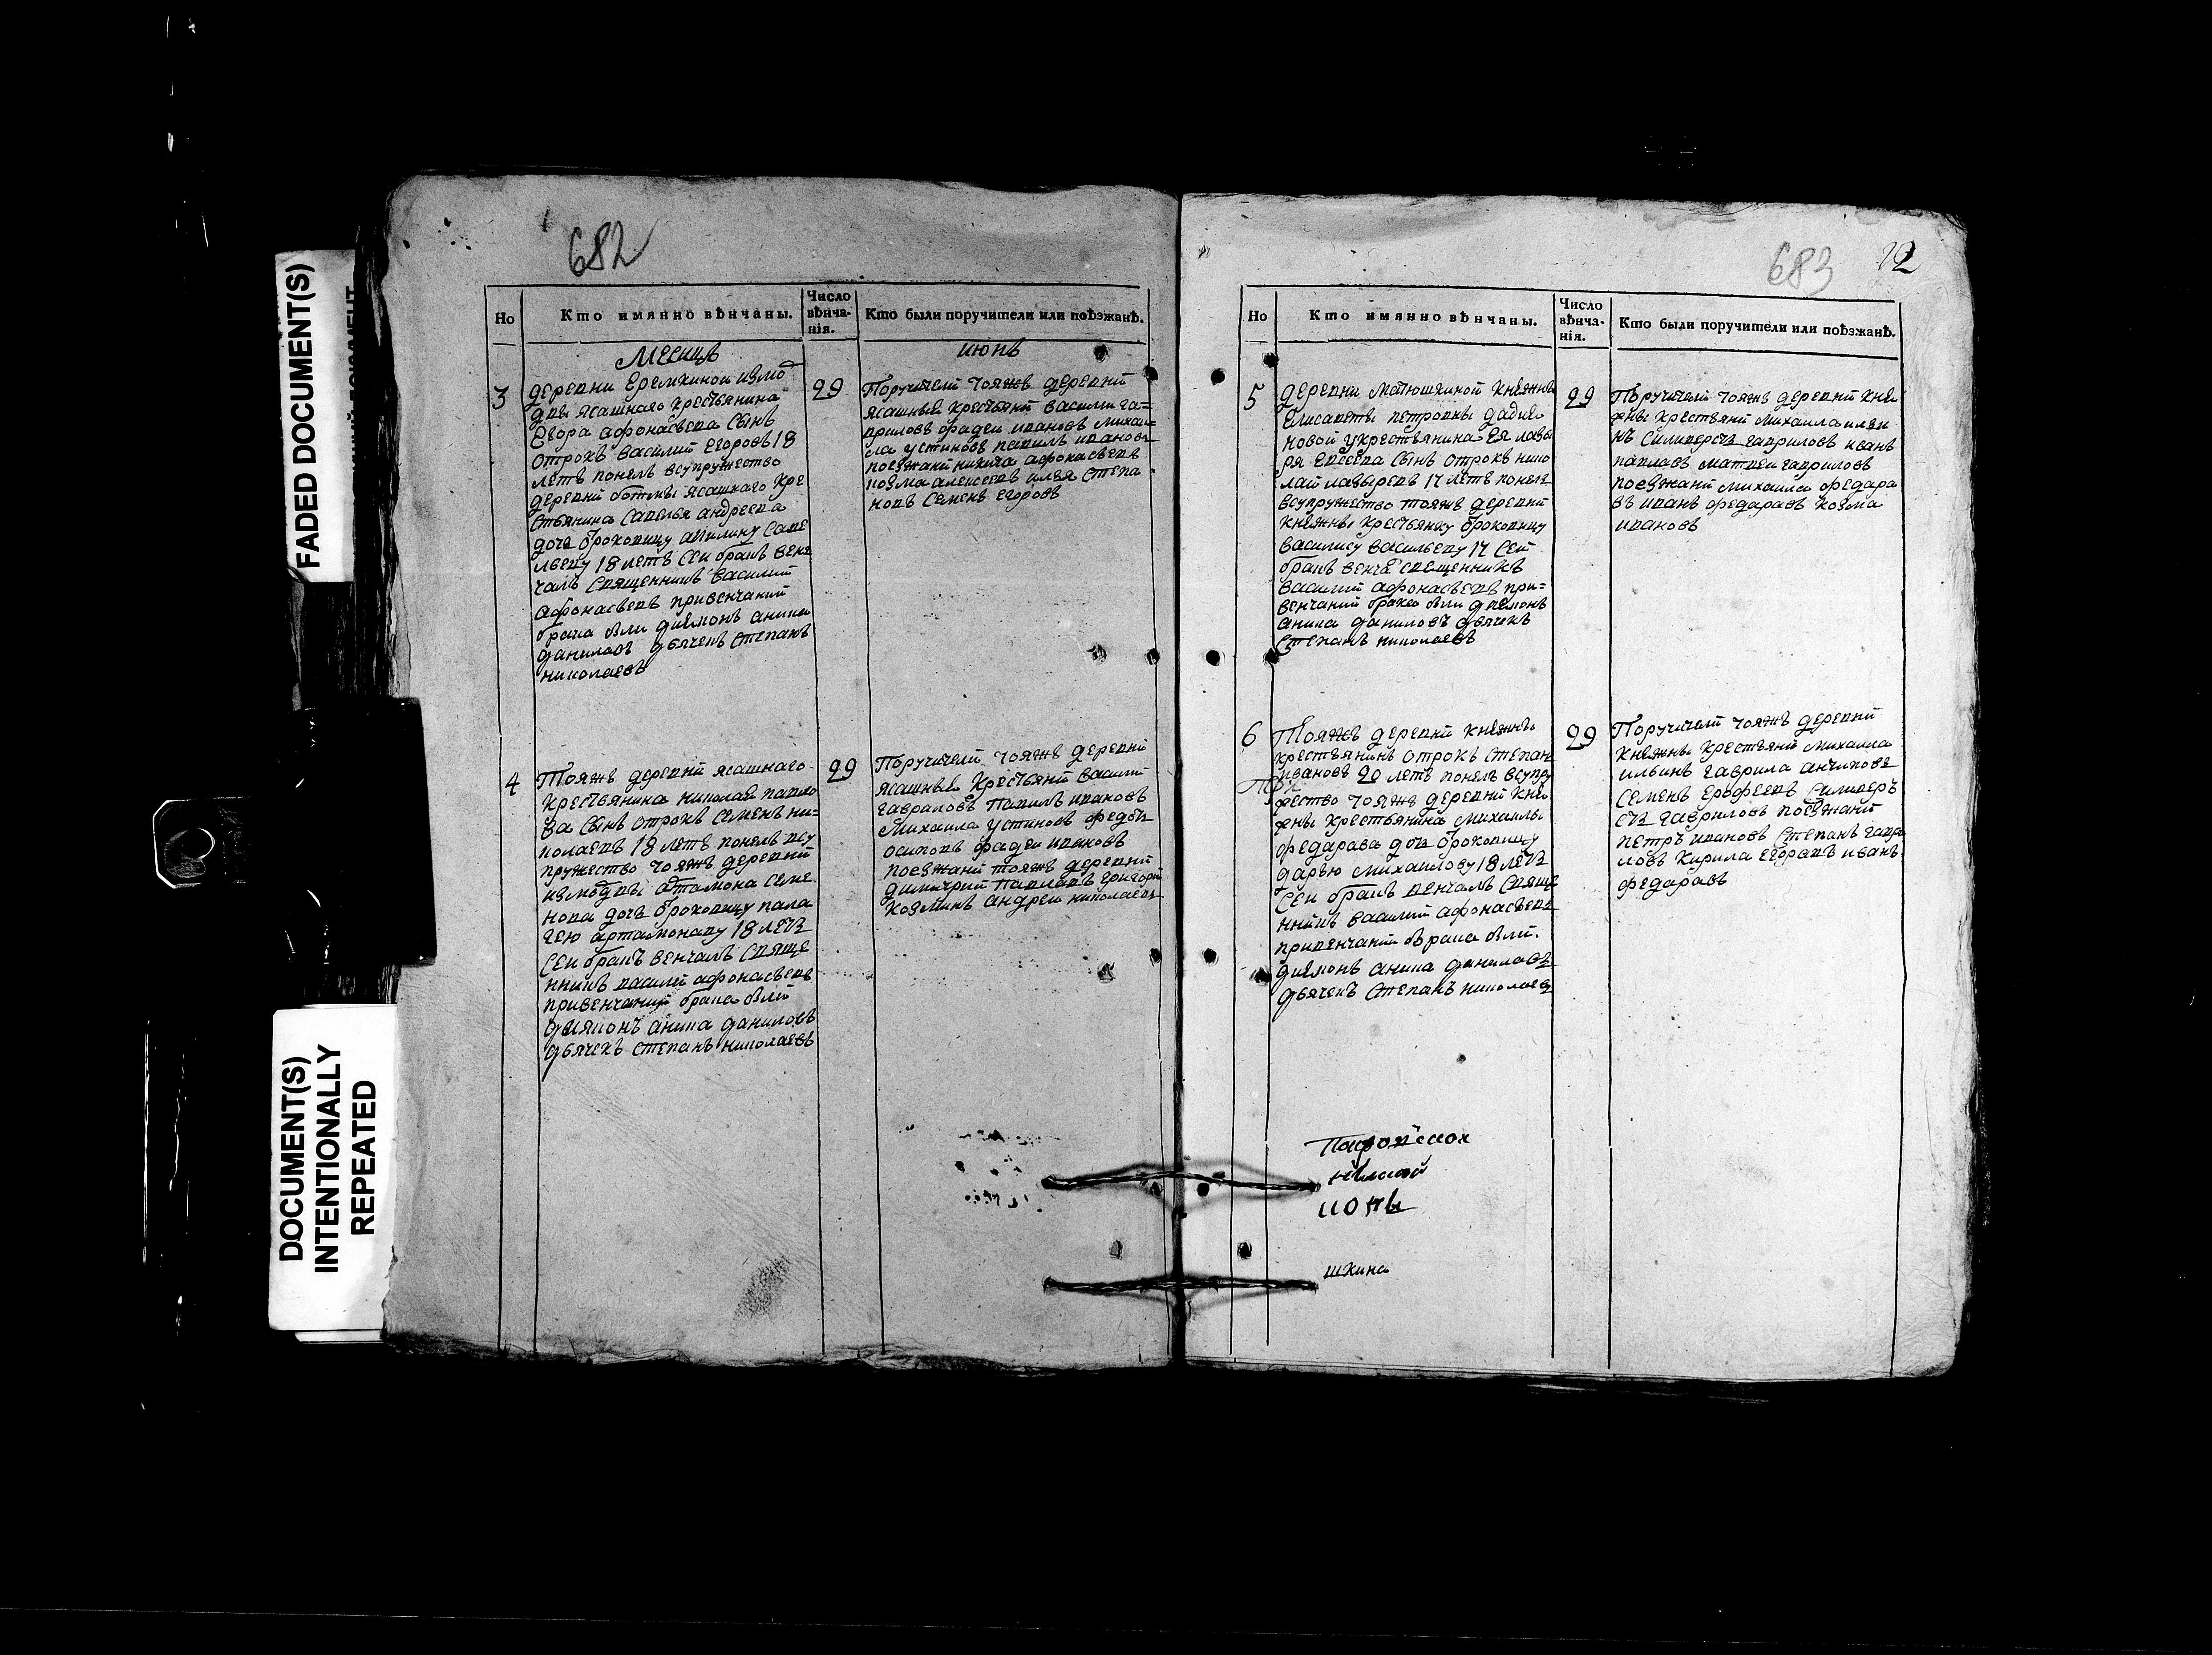 FADED DOCUMENT(S)
DOCUMENT(S)
INTENTIONALLY
REPEATED
682
Но
Кто имянно вѣнчаны.
Число
вѣнча-
нія.
Кто были поручители или поѣзжанѣ.
Месяца
июнь
3
деревни Еремкиной измо
двы ясашнаго крестьянина
Егора афонасьева сынъ
отрокъ василий Егоровъ 18
летъ понелъ всупружество
деревни ботмы ясашнаго кре
стьянина савелья андреева
дочь броковицу акилину саве
льеву 18 летъ сеи бракъ вен
чалъ священникъ василий
афонасьевъ привенчаний
брака были дияконъ аника
даниловъ дьячекъ степанъ
николаевъ
29
Поручители тояжъ деревни
ясашныя крестьяни василий га=
вриловъ фадеи ивановъ михаи=
ла устиновъ павилъ ивановъ
поезжани никита афонасьевъ
козма алексеевъ илья степа
новъ семенъ Егоровъ
4
Тояжъ деревни ясашнаго
крестьянина николая павло
ва сынъ отрокъ семенъ ни=
колаевъ 18 летъ понелъ всу
пружество тояжъ деревни
измодвы артамона семе
нова дочь броковицу пала
гею артамонаву 18 летъ
сеи бракъ венчалъ свяще
нникъ васили афонасьевъ
привенчании брака были
дияконъ аника даниловъ
дьячекъ степанъ николаевъ
29
Поручители тояжъ деревни
ясашныя крестьяни василий
гавраловъ павилъ ивановъ
михаила устиновъ федоръ
осиповъ фадеи ивановъ
поезжани тояжъ деревни
димитрий павлавъ григори
козминъ андреи николаевъ
683
22
Но
Кто имянно вѣнчаны.
Число
вѣнча-
нія.
Кто были поручители или поѣзжанѣ.
5
деревни матюшкиной княжны
Елисаветы петровны
новой укрестьянина Ея лавы
ря Евсева сынъ отрокъ нико
лай лавыревъ 17 летъ понелъ
всупружество тояжъ деревни
княжны крестьянку броковицу
василису васильеву 17 сей
бракъ венча священникъ
василий афонасьевъ при=
венчаний брака были дияконъ
аника даниловъ дьячекъ
степанъ николаевъ
29
Поручители тояжъ деревни кня
жны крестьяни михаила или
нъ селиверстъ гавриловъ иванъ
павлавъ матвеи гавриловъ
поезжани михаила федара
въ иванъ федаравъ козма
ивановъ
6
Тояжъ деревни княжны
крестьянинъ отрокъ степан
ивановъ 20 летъ понелъ всупру
жество тояжъ деревни кня
жны крестьянина михаилы
федарава дочь броковицу
дарью михаилову 18 летъ
сеи бракъ венчалъ свяще
нникъ василий афонасьевъ
привенчании брака были
дияконъ аника данилавъ
дьячекъ степанъ николаевъ
29
Поручители тояжъ деревни
княжны крестьяни михаила
ильинъ гаврила антиповъ
семенъ Ерофеевъ селивер
стъ гавриловъ поезжани
петръ ивановъ степанъ гаври
ловъ кирила Егоравъ иванъ
федаравъ
июнь
шкина